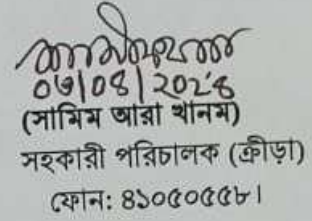 ০৬|০৪|২০২৪
(সামিম আরা খানম)
সহকারী পরিচালক (ক্রীড়া)
ফোন: ৪১০৫০৫৫৮।